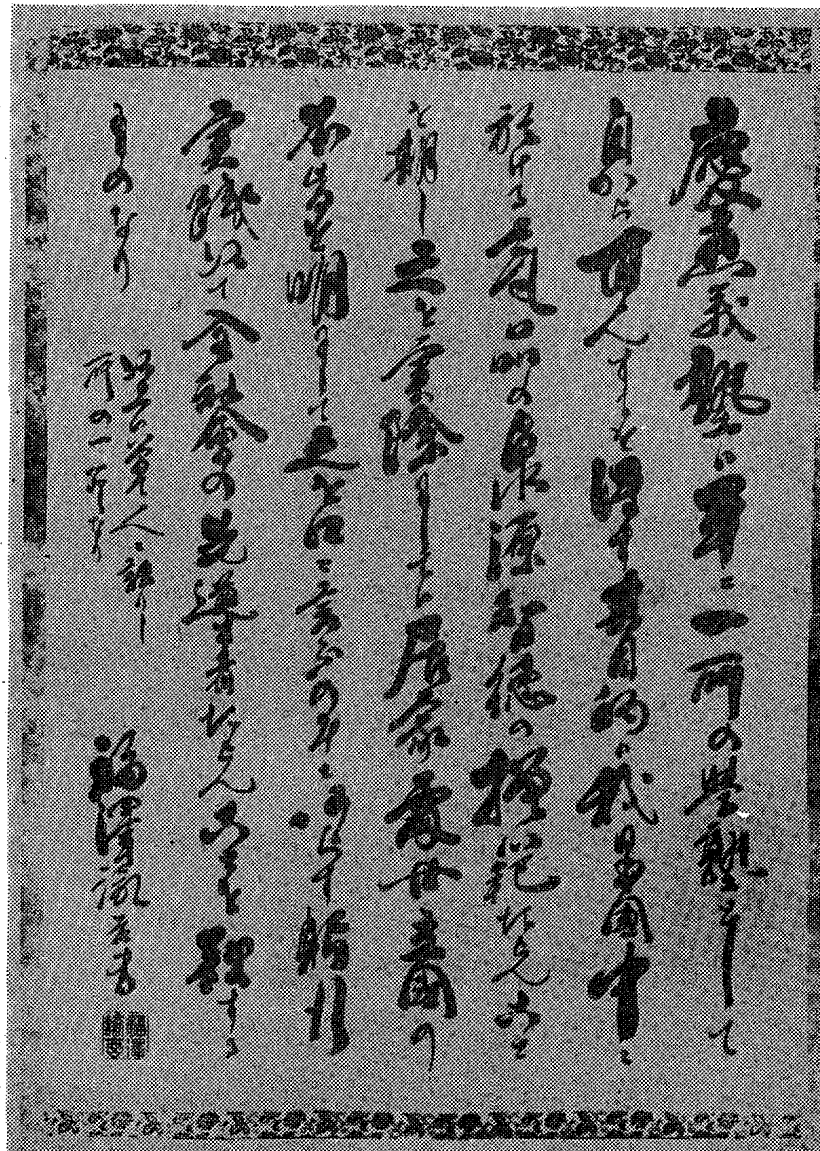 慶應義塾ハ単ニ一所の学塾として
自から甘んするを得す其目的ハ我日本國中ニ
於ける気品の泉源智徳の模範たらんこと
を期し之を実際にしてハ居家處世立國の
本旨を明にして之を口ニ言ふのみニあらす躬行
実践以て全社會の先導者たらんことを欲する
ものなり
以上ハ曾て人ニ語りし
所の一節なり
福澤諭吉書